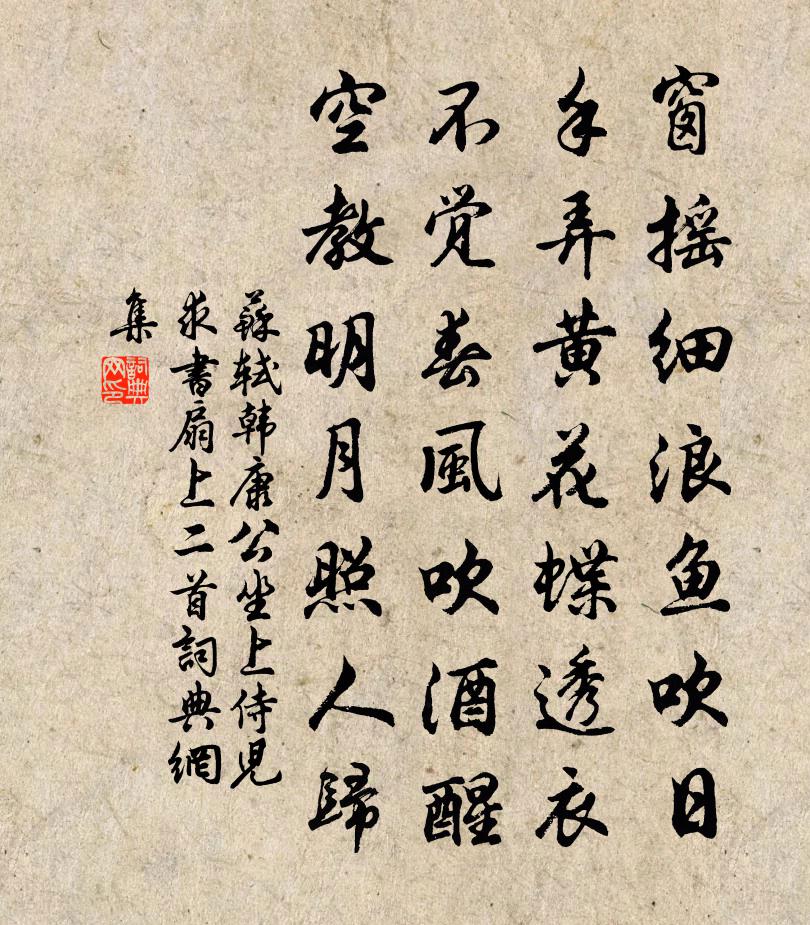 窗搖細浪魚吹日
手弄黄花蝶透衣
不覚春風吹酒醒
空教明月照人歸
蘇軾韩康公坐上侍児
求書扇上二首詞典網
集
詞典
网印